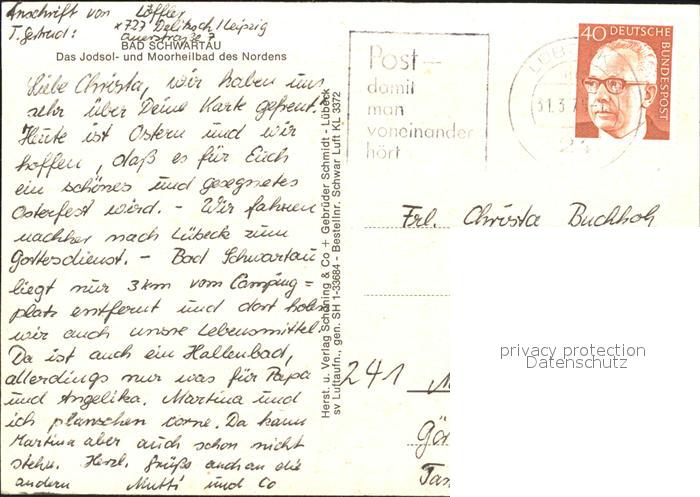 Anschrift von Löffler
T. Gertrud: x727 Delitzsch/Leipzig
Querstraße 7
BAD SCHWARTAU
Das Jodsol- und Moorheilbad des Nordens
Liebe Christa, wir haben uns
sehr über Deine Karte gefreut.
Heute ist Ostern und wir
hoffen, daß es für Euch
ein schönes und gesegnetes
Osterfest wird. - Wir fahren
nachher nach Lübeck zum
Gottesdienst. - Bad Schwartau
liegt nur 3 km vom Camping=
platz entfernt und dort holen
wir auch unsre Lebensmittel.
Da ist auch ein Hallenbad,
allerdings nur was für Papa
und Angelika. Martina und
ich planschen vorne. Da kann
Martina aber auch schon nicht
stehn. Herzl. Grüße auch an die
andern Mutti und Co
Herst. u. Verlag Schöning & Co + Gebrüder Schmidt - Lübeck
sv Luftaufn., gen. SH 1-33684 - Bestellnr. Schwar Luft KL 3372
Post-
damit
man
voneinander
hört
31.3.7
24
40 DEUTSCHE
BUNDESPOST
Frl. Christa Buchholz
241
privacy protection
Datenschutz